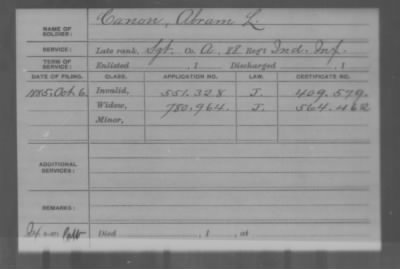 NAME OF SOLDIER: Canon, Abram L.
SERVICE: Late rank, Sgt. Co. A, 88 Reg't Ind. Inf.
TERM OF SERVICE: Enlisted , 1 Discharged , 1
DATE OF FILING. CLASS. APPLICATION NO. LAW. CERTIFICATE NO.
1885, Oct. 6. Invalid, 551.328 J. 409.579.
Widow, 780.964. J. 564.462
Minor,
ADDITIONAL SERVICES:
REMARKS:
Died , 1 , at